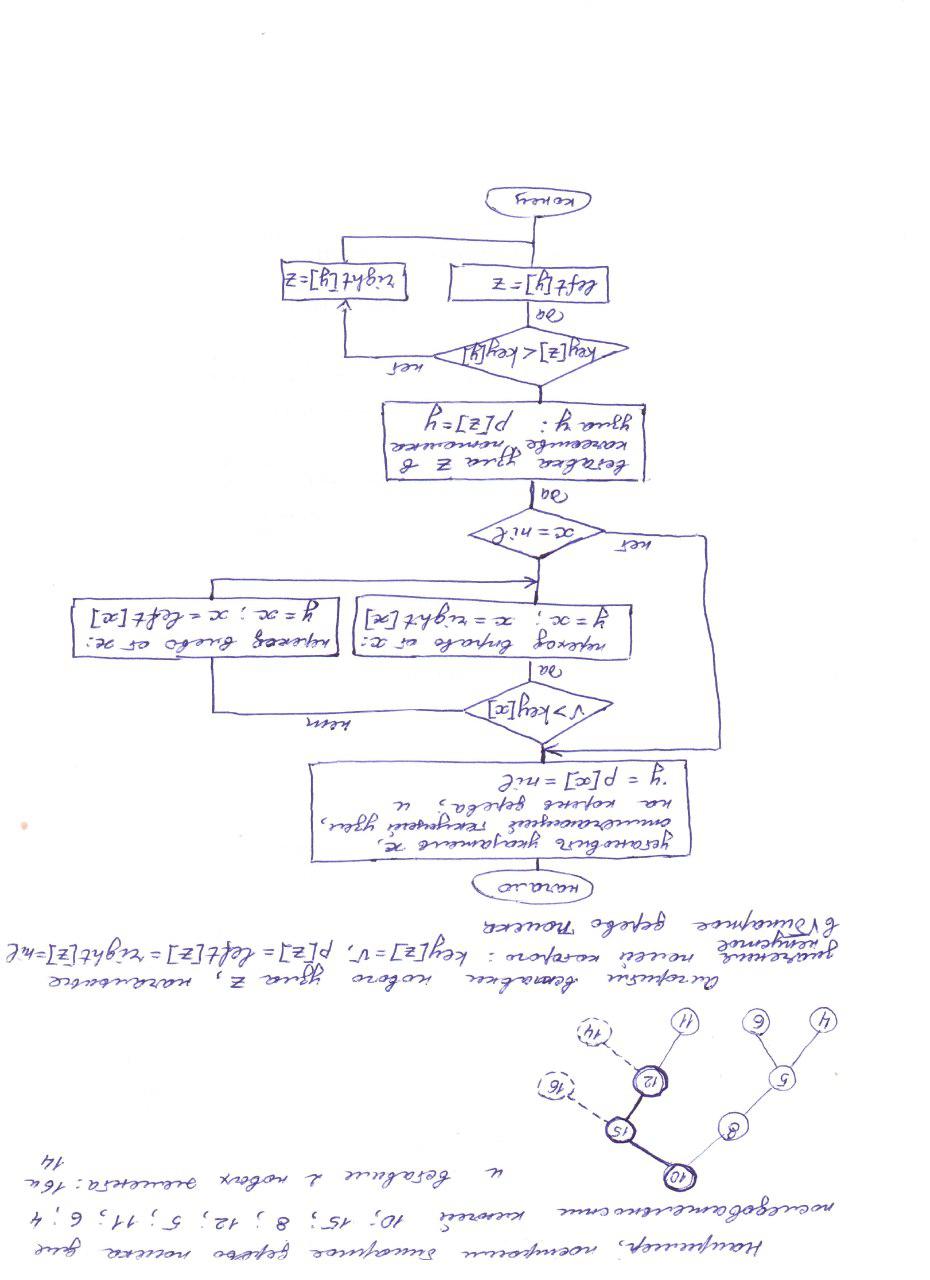 Например, построим бинарное дерево поиска для
последовательности ключей 10; 15; 8; 12; 5; 11; 6; 4
и вставим 2 новых элемента: 16 и
14
10
8
15
5
12
16
4
6
11
14
Алгоритм вставки нового узла z, начальные
значения полей которого: key[z]=v, p[z]=left[z]=right[z]=nil
непустое
в √бинарное дерево поиска
начало
установить указатель x,
отмечающий текущий узел,
на корень дерева; и
y = p[x] = nil
v > key[x]
нет
да
переход вправо от x:
y = x; x = right[x]
переход влево от x:
y = x; x = left[x]
нет
x = nil
да
вставка узла z в
качестве потомка
узла y: p[z] = y
key[z] < key[y]
нет
да
left[y] = z
right[y] = z
конец